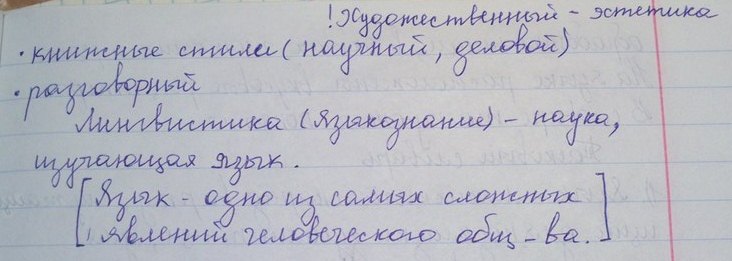 ! Художественный - эстетика
· книжные стили (научный, деловой)
· разговорный
Лингвистика (Языкознание) - наука,
изучающая язык.
[Язык - одно из самых сложных
явлений человеческого общ-ва.]